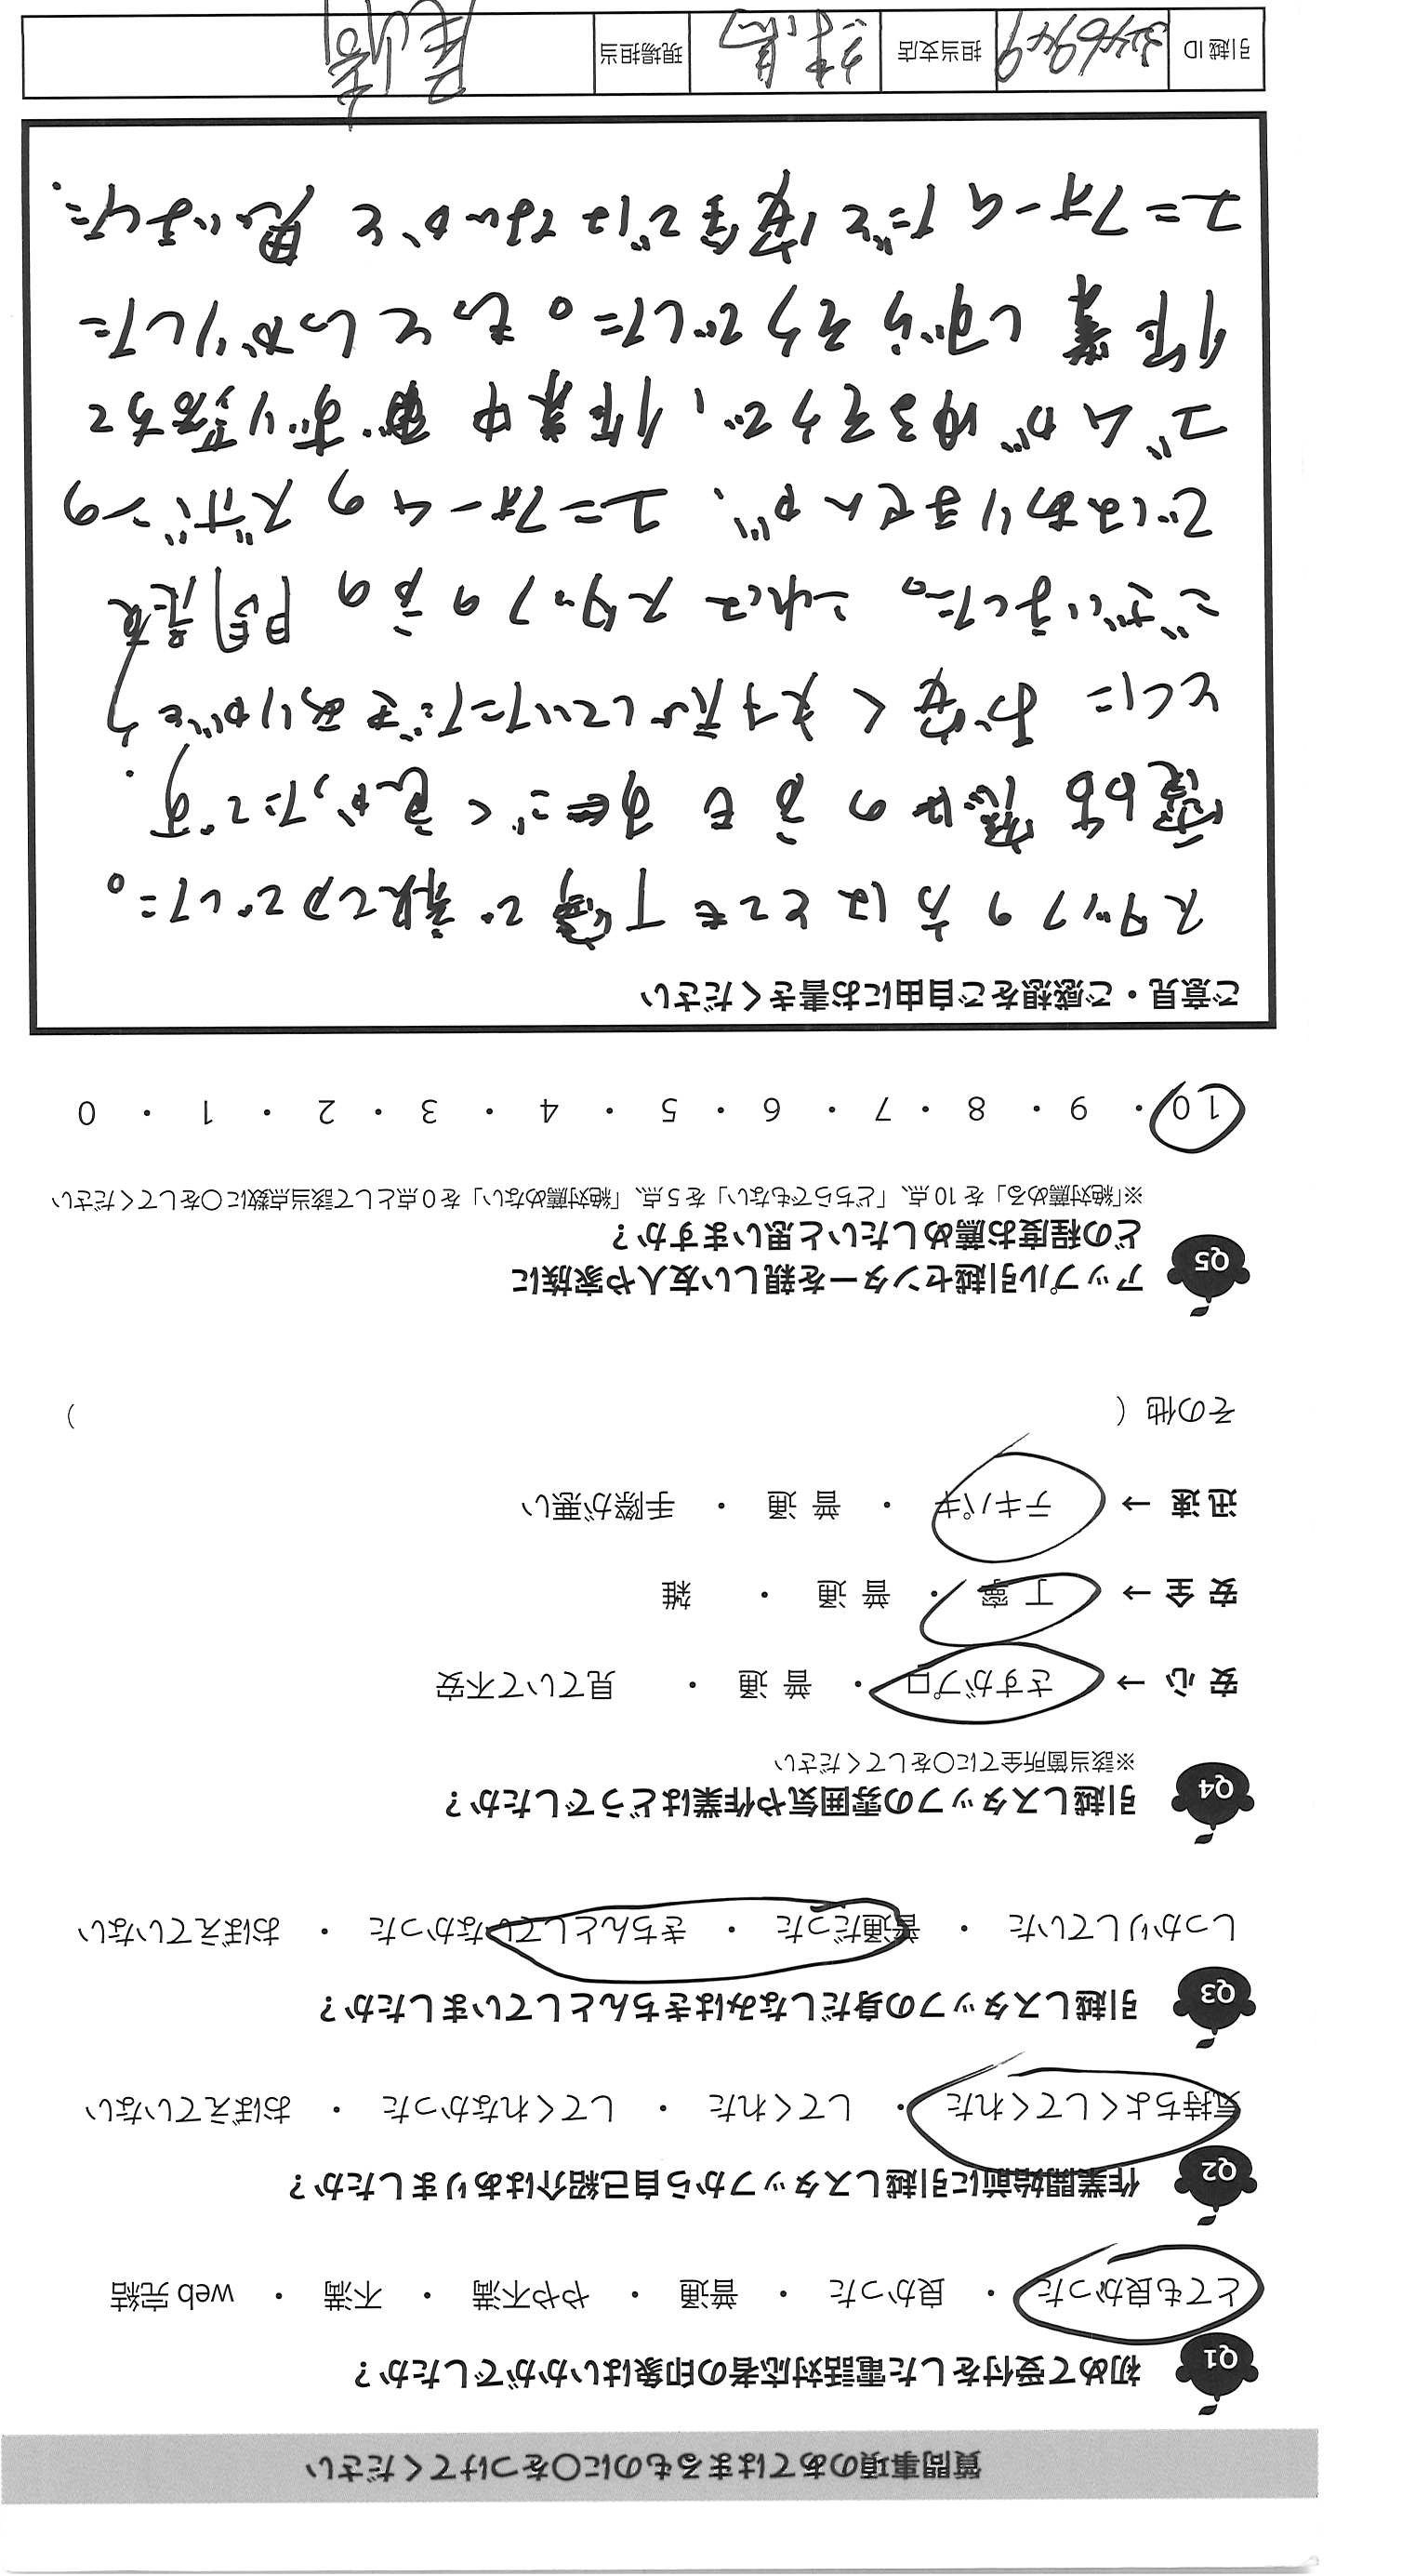 質問事項のあてはまるものに○をつけてください
Q1 初めて受付をした電話対応者の印象はいかがでしたか？
とても良かった ・ 良かった ・ 普通 ・ やや不満 ・ 不満 ・ web 完結
Q2 作業開始前に引越しスタッフから自己紹介はありましたか？
気持ちよくしてくれた ・ してくれた ・ してくれなかった ・ おぼえていない
Q3 引越しスタッフの身だしなみはきちんとしていましたか？
しっかりしていた ・ 普通だった ・ きちんとしていなかった ・ おぼえていない
Q4 引越しスタッフの雰囲気や作業はどうでしたか？
※該当箇所全てに○をしてください
安 心 → さすがプロ ・ 普 通 ・ 見ていて不安
安 全 → 丁 寧 ・ 普 通 ・ 雑
迅 速 → テキパキ ・ 普 通 ・ 手際が悪い
その他 （ ）
Q5 アップル引越センターを親しい友人や家族に
どの程度お薦めしたいと思いますか？
※「絶対薦める」を 10 点、「どちらでもない」を 5 点、「絶対薦めない」を 0 点として該当点数に○をしてください
10 ・ 9 ・ 8 ・ 7 ・ 6 ・ 5 ・ 4 ・ 3 ・ 2 ・ 1 ・ 0
ご意見・ご感想をご自由にお書きください
スタッフの方はとても丁寧で素敵でした。
電話応対の方もすごく良かったです。
とくに お安く対応していただきありがとう
ございました。これはスタッフの方の問題
ではありませんが、ユニフォームのズボンの
ゴムがゆるそうで、作業中ずり落ちて
作業しずらそうでした。もっとしっかりした
ユニフォームだと安全ではないかと思いました.
引越 ID 担当支店 練馬 現場担当 尾崎